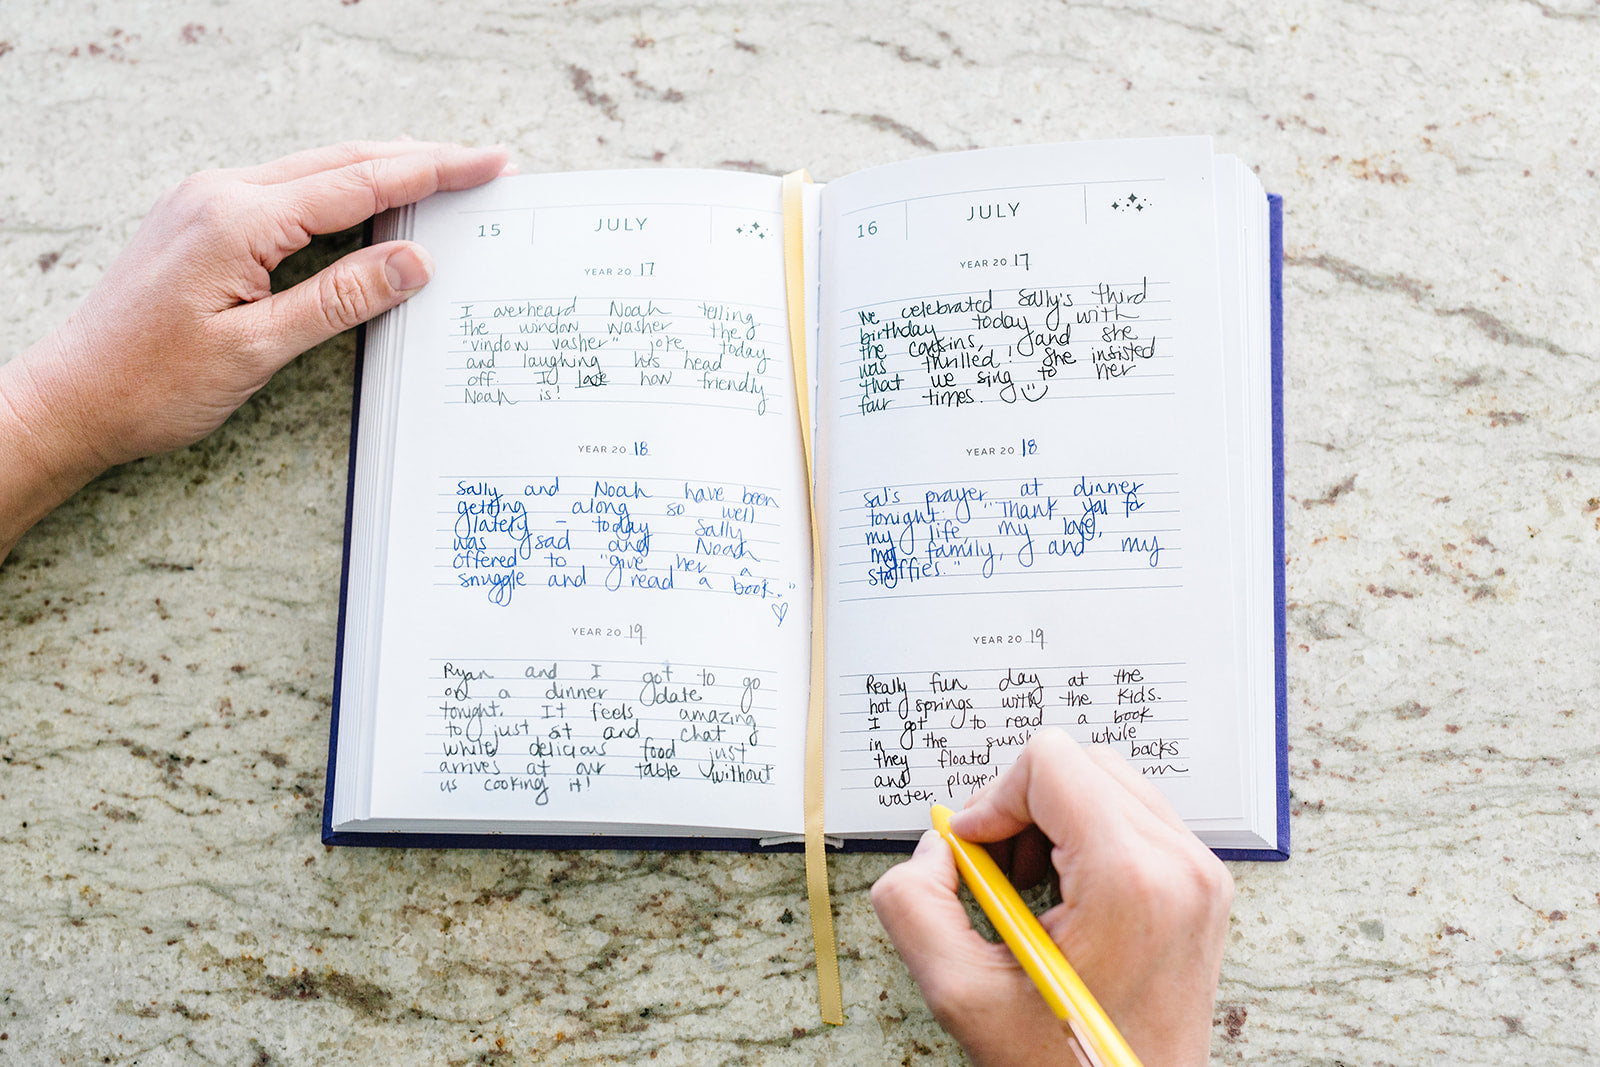 15 JULY
YEAR 20 17
I overheard Noah telling
the window washer the
"vindow vasher" joke today
and laughing his head
off. I love how friendly
Noah is!
YEAR 20 18
Sally and Noah have been
getting along so well
lately - today Sally
was sad and Noah
offered to "give her a
snuggle and read a book."
YEAR 20 19
Ryan and I got to go
on a dinner date
tonight. It feels amazing
to just sit and chat
while delicious food just
arrives at our table without
us cooking it!
16 JULY
YEAR 20 17
We celebrated Sally's third
birthday today with
the cousins, and she
was thrilled! She insisted
that we sing to her
four times.
YEAR 20 18
Sal's prayer at dinner
tonight: "Thank you for
my life, my love,
my family, and my
stuffies."
YEAR 20 19
Really fun day at the
hot springs with the kids.
I got to read a book
in the while
they floated backs
and played
water.